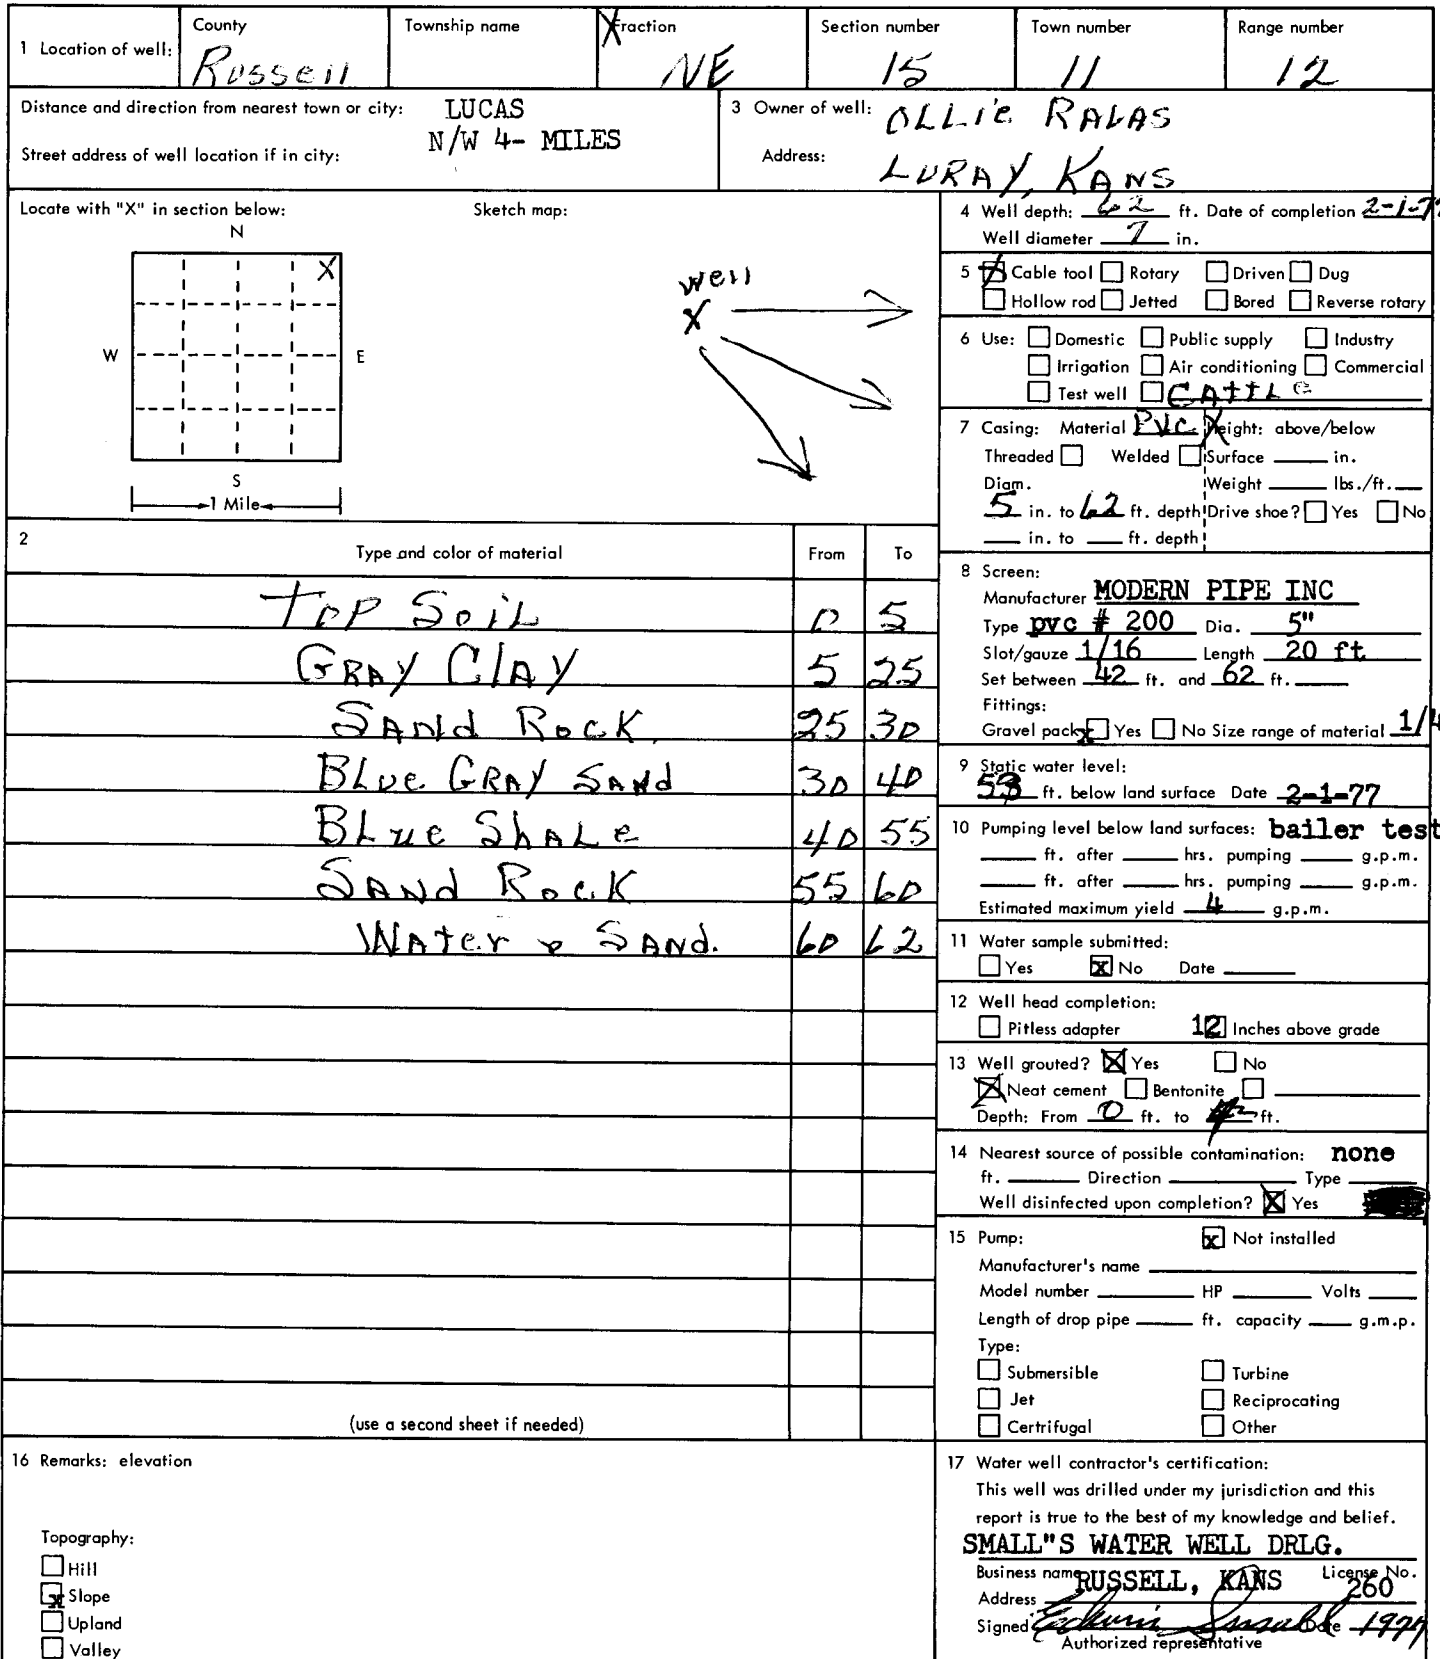 1 Location of well: County Russell Township name Fraction NE Section number 15 Town number 11 Range number 12
Distance and direction from nearest town or city: LUCAS
N/W 4- MILES
Street address of well location if in city:
3 Owner of well: OLLie RALAS
Address: LURAY, KANS
Locate with "X" in section below: Sketch map:
N
X
W E
S
1 Mile
well
X
4 Well depth: 62 ft. Date of completion 2-1-7
Well diameter 7 in.
5 X Cable tool Rotary Driven Dug
Hollow rod Jetted Bored Reverse rotary
6 Use: Domestic Public supply Industry
Irrigation Air conditioning Commercial
Test well CAttLe
7 Casing: Material PVC Height: above/below
Threaded Welded Surface in.
Diam. Weight lbs./ft.
5 in. to 62 ft. depth Drive shoe? Yes No
in. to ft. depth
2 Type and color of material From To
Top Soil 0 5
GRAY ClAY 5 25
SANd RocK 25 30
BLue GRAY SANd 30 40
BLue ShALe 40 55
SANd RocK 55 60
WAter & SANd. 60 62
(use a second sheet if needed)
8 Screen:
Manufacturer MODERN PIPE INC
Type pvc # 200 Dia. 5"
Slot/gauze 1/16 Length 20 ft
Set between 42 ft. and 62 ft.
Fittings:
Gravel pack x Yes No Size range of material 1/4
9 Static water level:
ft. below land surface Date 2-1-77
10 Pumping level below land surfaces: bailer test
ft. after hrs. pumping g.p.m.
ft. after hrs. pumping g.p.m.
Estimated maximum yield 4 g.p.m.
11 Water sample submitted:
Yes x No Date
12 Well head completion:
Pitless adapter 12 Inches above grade
13 Well grouted? X Yes No
X Neat cement Bentonite
Depth: From 0 ft. to ft.
14 Nearest source of possible contamination: none
ft. Direction Type
Well disinfected upon completion? X Yes
15 Pump: x Not installed
Manufacturer's name
Model number HP Volts
Length of drop pipe ft. capacity g.m.p.
Type:
Submersible Turbine
Jet Reciprocating
Certrifugal Other
16 Remarks: elevation
Topography:
Hill
x Slope
Upland
Valley
17 Water well contractor's certification:
This well was drilled under my jurisdiction and this
report is true to the best of my knowledge and belief.
SMALL"S WATER WELL DRLG.
Business name License No.
RUSSELL, KANS 260
Address
Signed Edwin Small Date 1977
Authorized representative